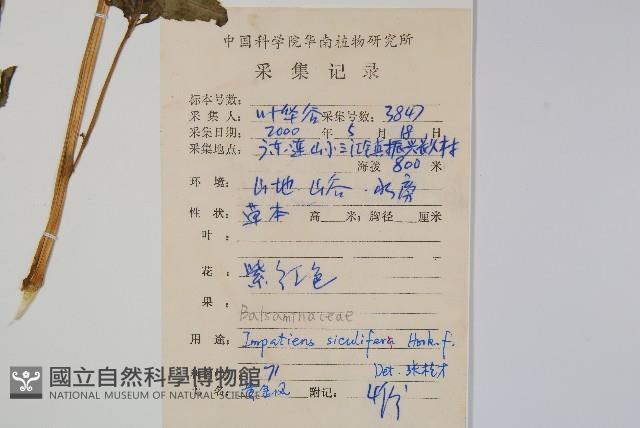 中国科学院华南植物研究所
采集记录
标本号数:
采集人: 叶华谷 采集号数: 3847
采集日期: 2000 年 5 月 18 日
采集地点: 连山小三江镇振兴
海拔 800 米
环境: 山地 山谷 . 水旁
性状: 草本 高 米; 胸径 厘米
叶:
花: 紫红色
果:
Balsaminaceae
用途: Impatiens siculifera Hook.f.
71 Det. 张
附记:
國立自然科學博物館
NATIONAL MUSEUM OF NATURAL SCIENCE